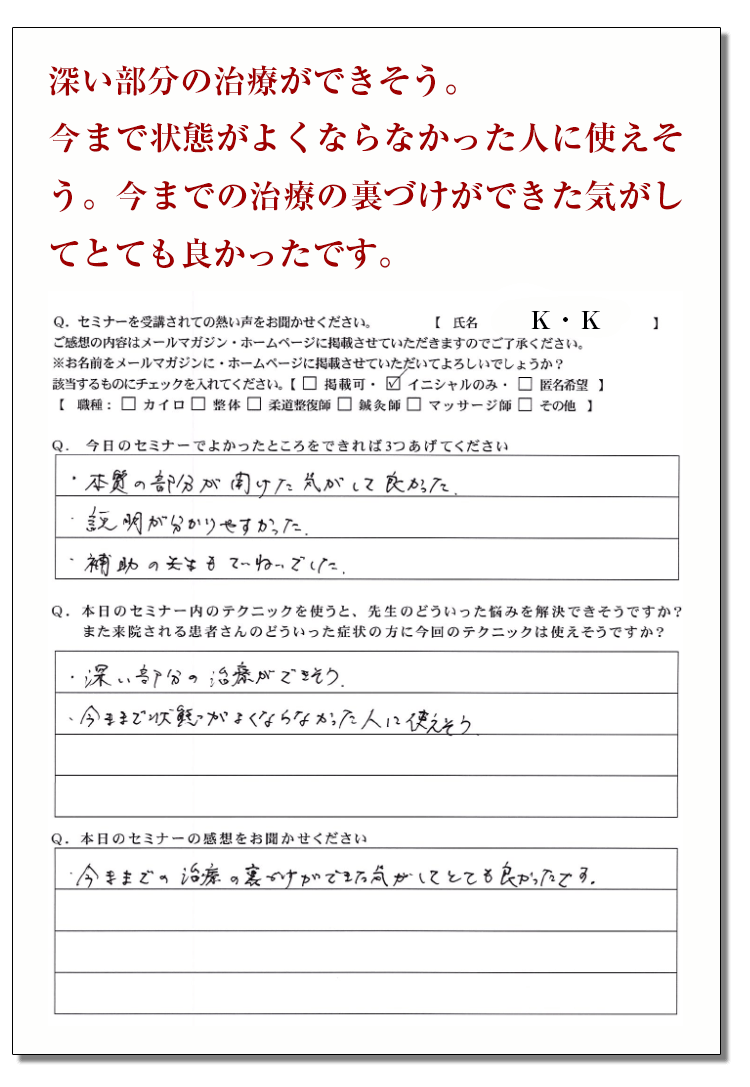 深い部分の治療ができそう。
今まで状態がよくならなかった人に使えそ
う。今までの治療の裏づけができた気がし
てとても良かったです。
Q. セミナーを受講されての熱い声をお聞かせください。 【 氏名 K・K 】
ご感想の内容はメールマガジン・ホームページに掲載させていただきますのでご了承ください。
※お名前をメールマガジンに・ホームページに掲載させていただいてよろしいでしょうか？
該当するものにチェックを入れてください。【 □ 掲載可・ ☑ イニシャルのみ・ □ 匿名希望 】
【 職種： □ カイロ □ 整体 □ 柔道整復師 □ 鍼灸師 □ マッサージ師 □ その他 】
Q. 今日のセミナーでよかったところをできれば3つあげてください
・本質の部分が聞けた気がして良かった.
・説明が分かりやすかった.
・補助の先生もていねいでした.
Q. 本日のセミナー内のテクニックを使うと、先生のどういった悩みを解決できそうですか？
また来院される患者さんのどういった症状の方に今回のテクニックは使えそうですか？
・深い部分の治療ができそう.
・今まで状態がよくならなかった人に使えそう.
Q. 本日のセミナーの感想をお聞かせください
・今までの治療の裏づけができた気がしてとても良かったです.